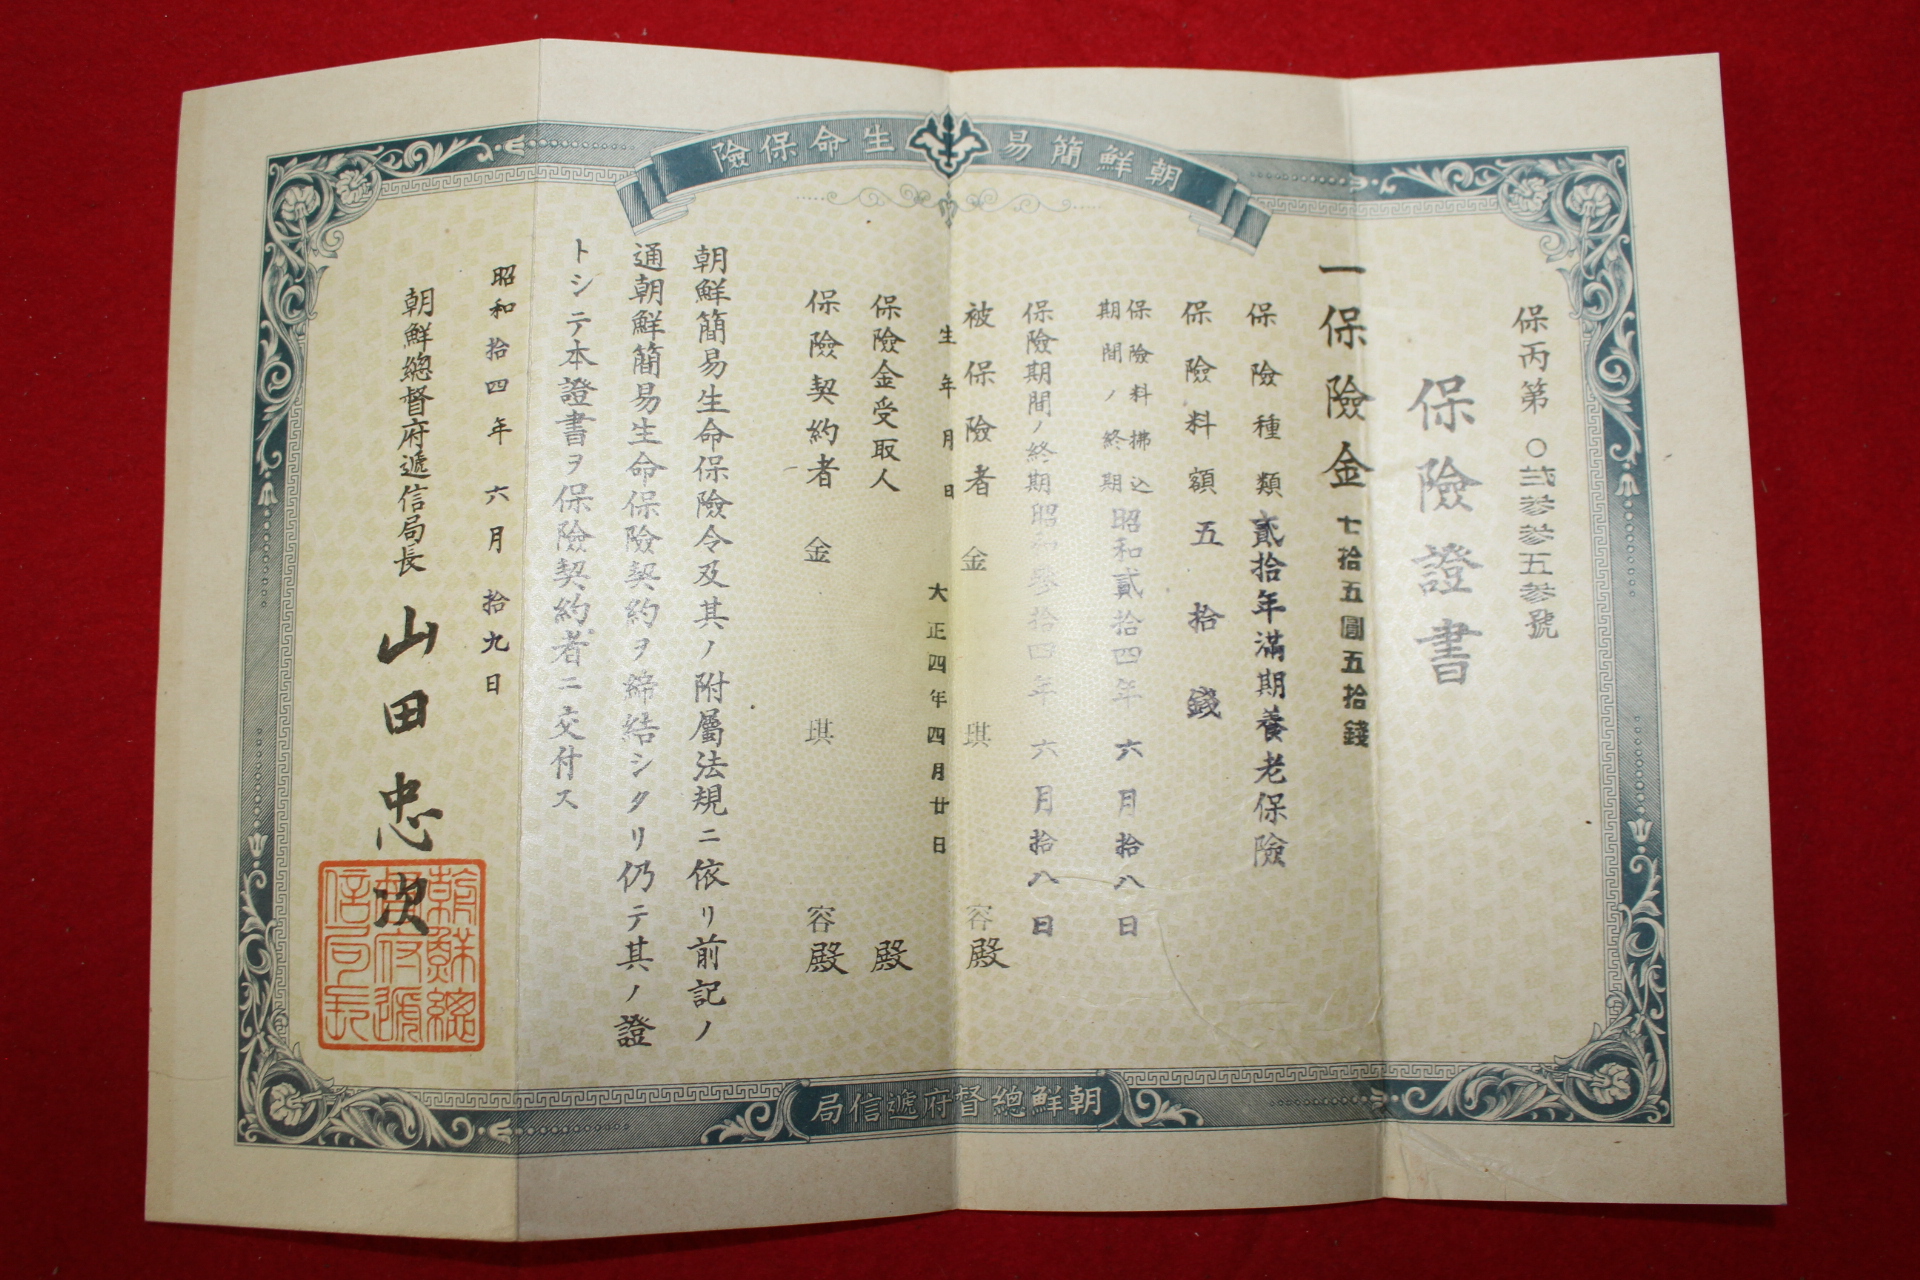 朝鮮簡易生命保險
保丙第〇弐参参五参號
保險證書
一保險金七拾五圓五拾錢
保險種類貳拾年滿期養老保險
保險料額五拾錢
保險料拂込
期間ノ終期昭和貳拾四年六月拾八日
保險期間ノ終期昭和參拾四年六月拾八日
被保險者金琪容殿
生年月日大正四年四月廿日
保險金受取人殿
保險契約者金琪容殿
朝鮮簡易生命保險令及其ノ附屬法規ニ依リ前記ノ
通朝鮮簡易生命保險契約ヲ締結シタリ仍テ其ノ證
トシテ本證書ヲ保險契約者ニ交付ス
昭和拾四年六月拾九日
朝鮮總督府遞信局長山田忠次
朝鮮總
督府遞
信局長
朝鮮總督府遞信局